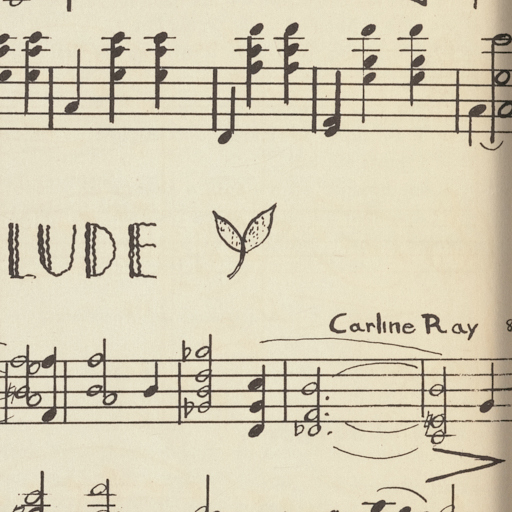 LUDE
Carline Ray 8